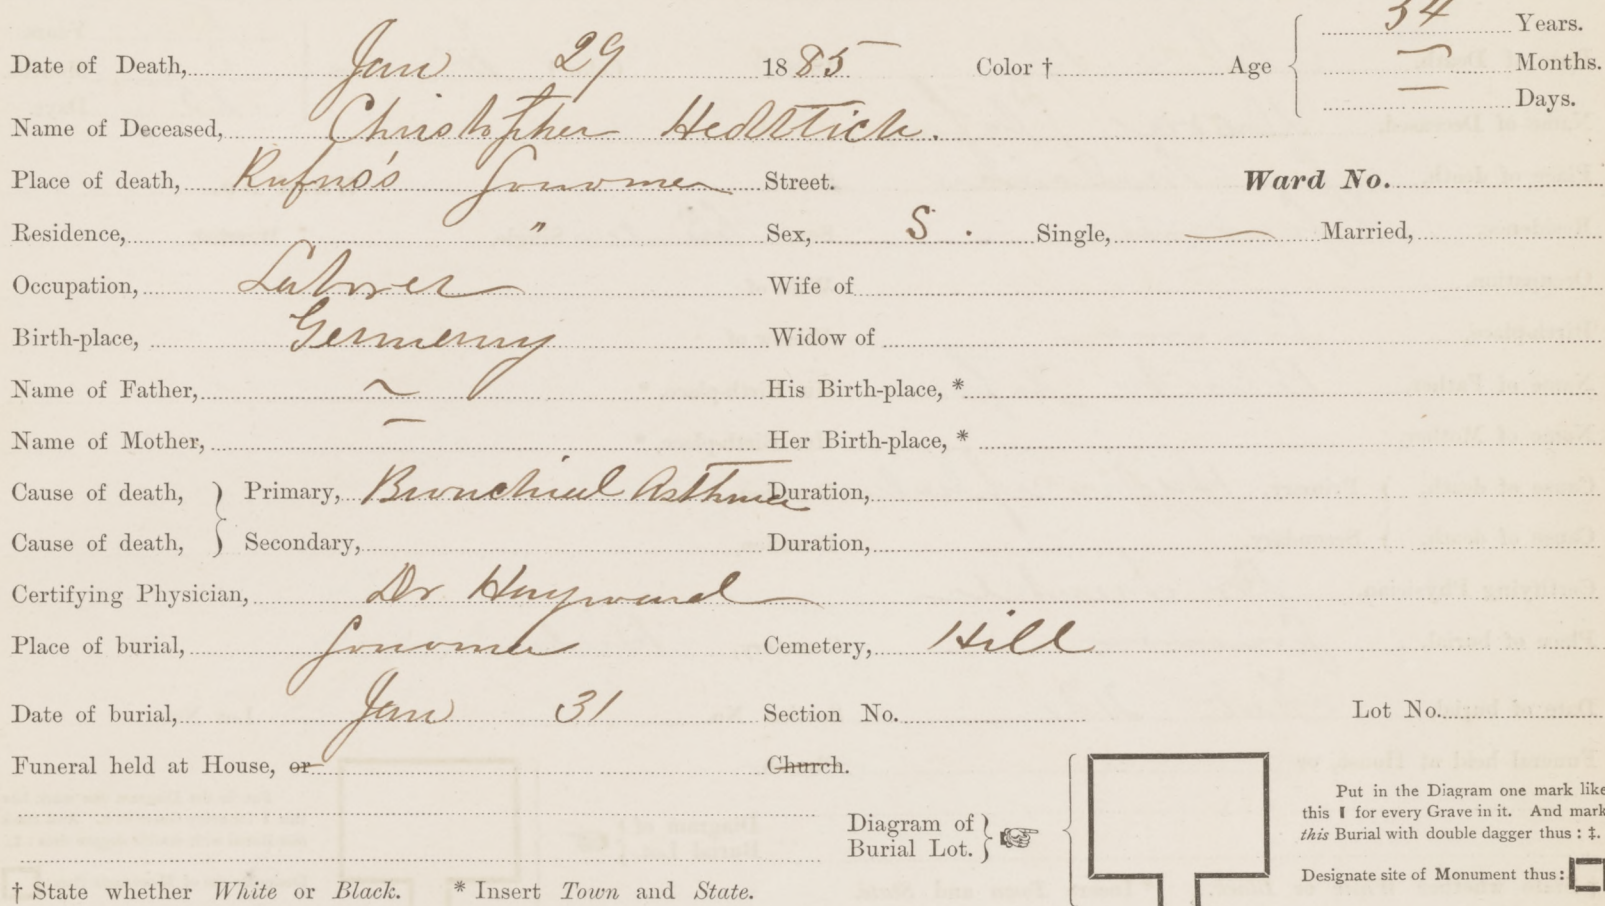 54 Years.
Date of Death, Jan 29 1885 Color † Age — Months.
— Days.
Name of Deceased, Christopher
Place of death, Sonoma Street. Ward No.
Residence, " Sex, S. Single, — Married,
Occupation, Laborer Wife of
Birth-place, Germany Widow of
Name of Father, ~ His Birth-place, *
Name of Mother, — Her Birth-place, *
Cause of death, } Primary, Bronchial Asthma Duration,
Cause of death, } Secondary, Duration,
Certifying Physician, Dr Hayward
Place of burial, Sonoma Cemetery, Hill
Date of burial, Jan 31 Section No. Lot No.
Funeral held at House, or Church.
Diagram of } Burial Lot.
Put in the Diagram one mark like
this ▌ for every Grave in it. And mark
this Burial with double dagger thus : ‡.
Designate site of Monument thus :
† State whether White or Black. * Insert Town and State.